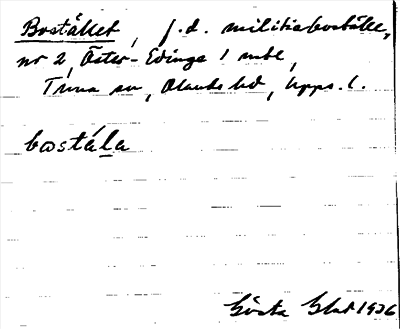 Bostället, f.d. militieboställe,
nr 2, Öster-Edinge 1 mtl,
Tuna sn, Olands hd, Upps. l.
bostála
Gösta 1936